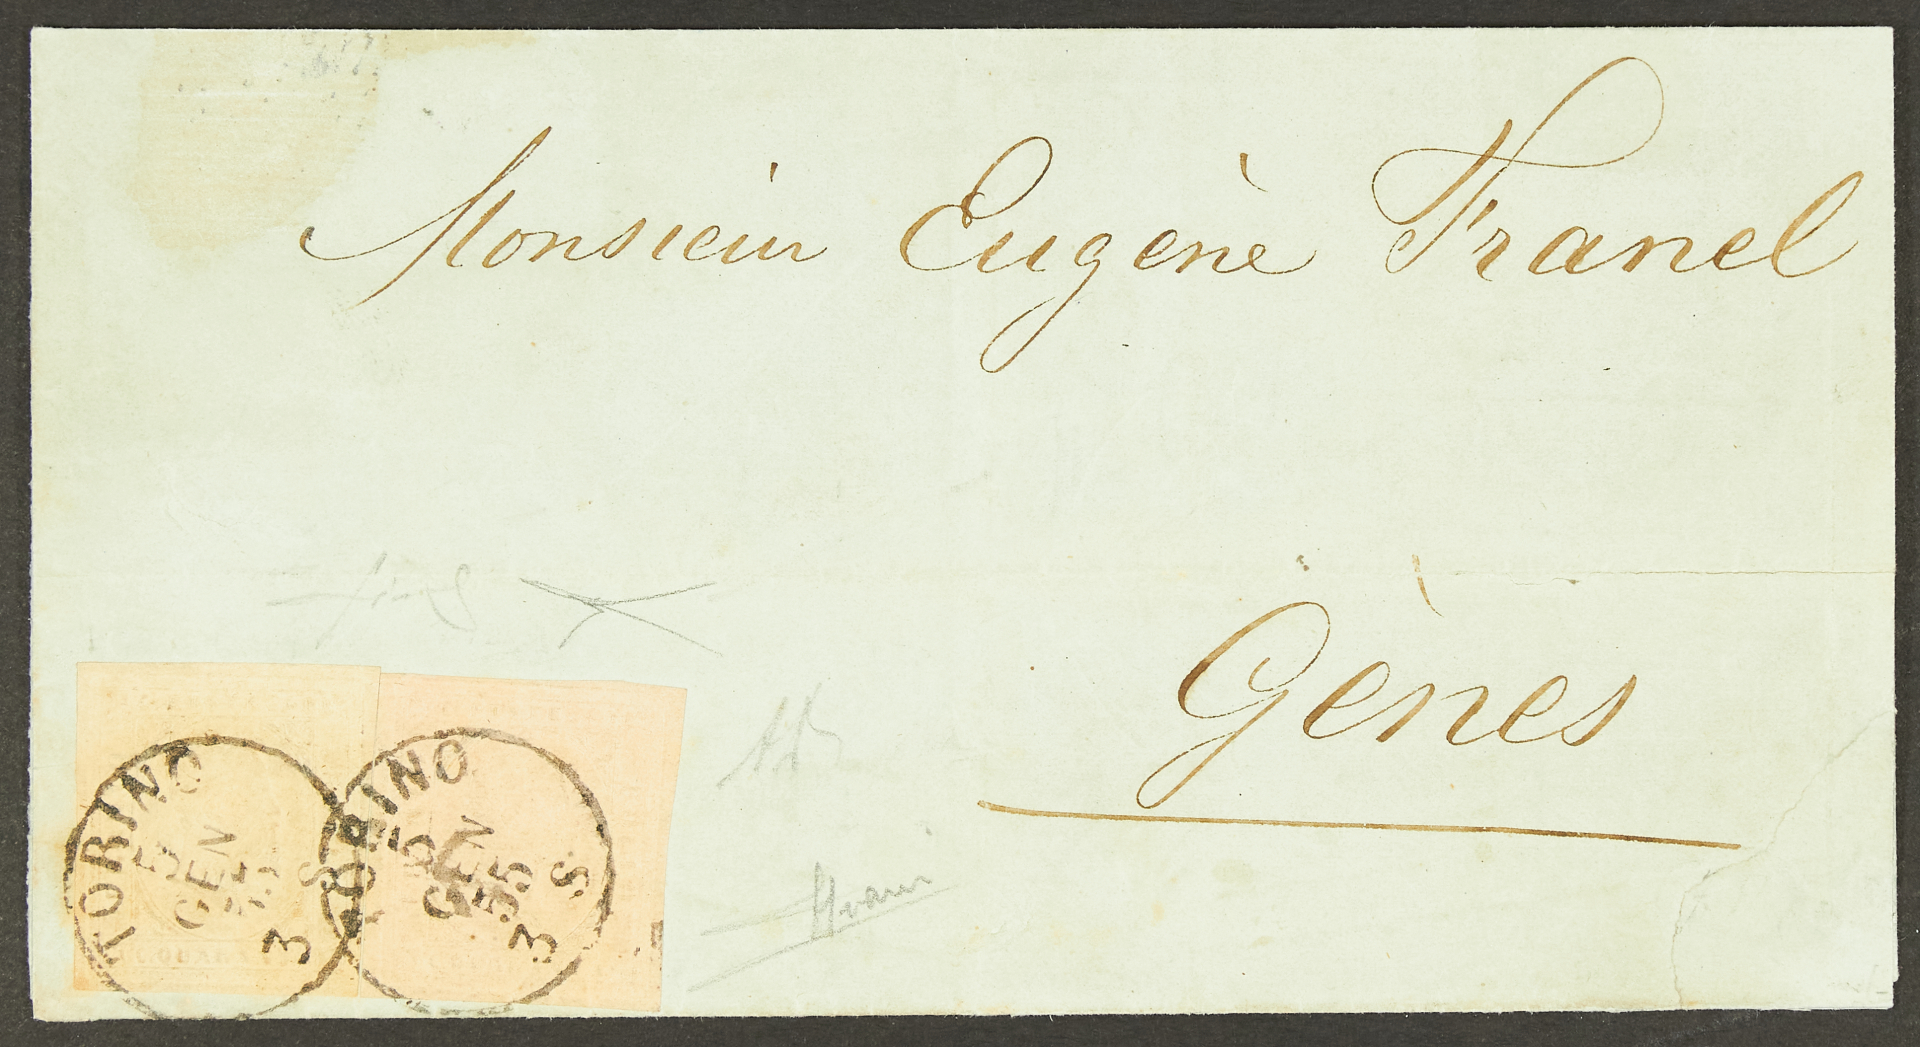 Monsieur Eugène Franel
Gènes
TORINO
5
GEN
55
3 S
TORINO
5
GEN
55
3 S.